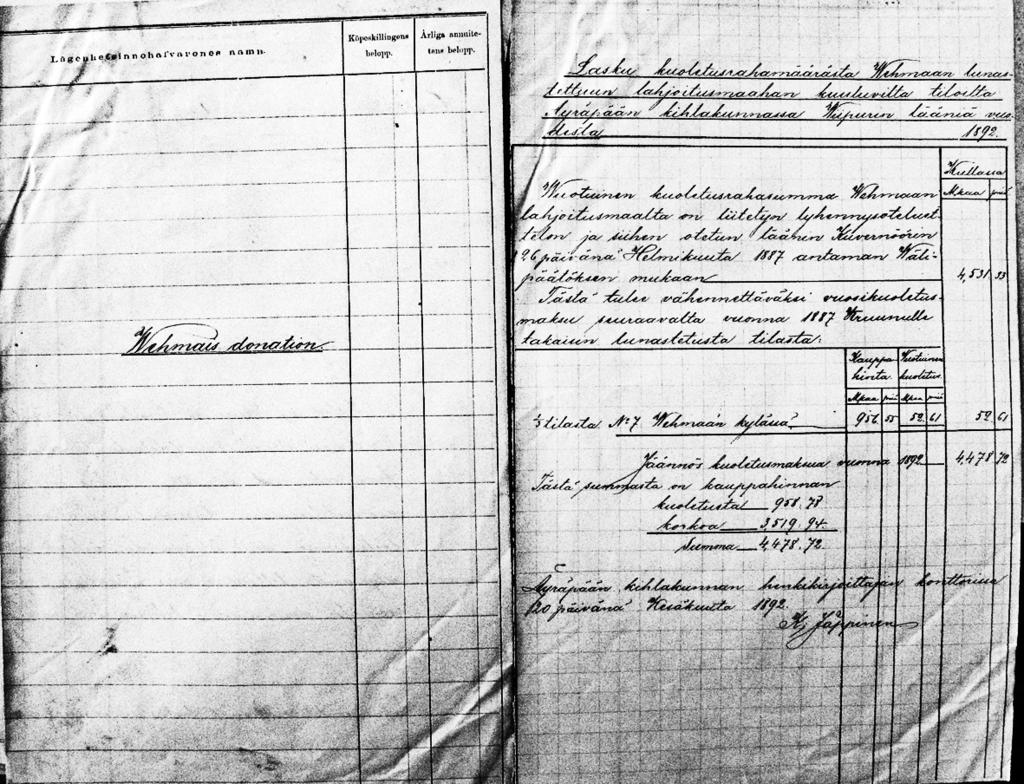 Lägenhetsinnehafvarenes namn.
Köpeskillingens belopp.
Årliga annuitetens belopp.
Wehmais donation.
Lasku kuoletusrahamäärästä Wehmaan lunas-
tettuun lahjoitusmaahan kuuluvilta tiloilta
Äyräpään kihlakunnassa Wiipurin lääniä vuo-
desta 1892.
Kullassa
Mkaa pniä
Wuotuinen kuoletusrahasumma Wehmaan
lahjoitusmaalta on liitetyn lyhennysoteluet-
telon ja siihen otetun läänin Kuvernöörin
26 päivänä Helmikuuta 1887 antaman Wäli-
päätöksen mukaan 4,531 33
Tästä tulee vähennettäväksi vuosikuoletus-
maksu seuraavalta vuonna 1887 Kruunulle
takaisin lunastetusta tilasta:
Kauppa hinta. Wuotuinen kuoletus.
Mkaa pniä Mkaa pniä
1/3 tilasta No 7 Wehmaan kylässä 956 55 52 61 52 61
Jäännös kuoletusmaksua vuonna 1892 4,478 72
Tästä summasta on kauppahinnan
kuoletusta 958.78
korkoa 3,519.94.
Summa 4,478.72.
Äyräpään kihlakunnan henkikirjoittajan konttorissa
20 päivänä Kesäkuuta 1892.
K. Jäppinen